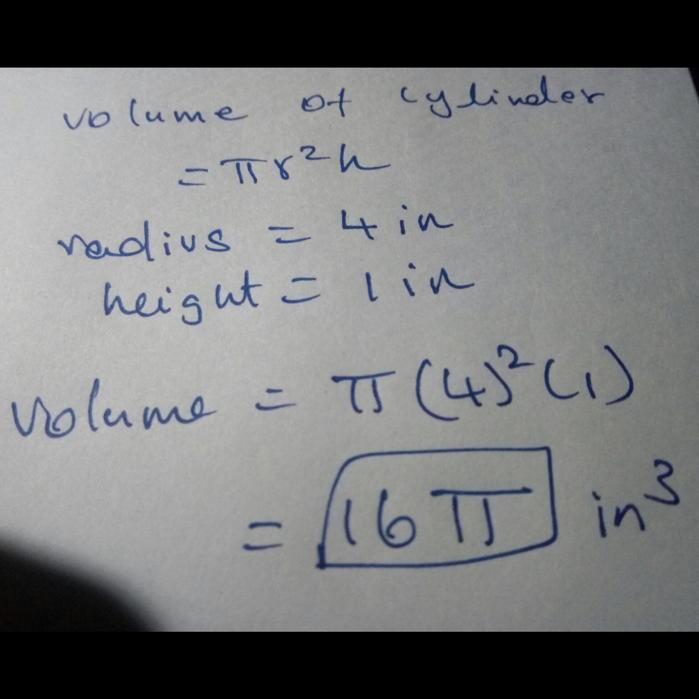 volume of cylinder
= πr²h
radius = 4 in
height = 1 in
volume = π(4)²(1)
= 16π in³